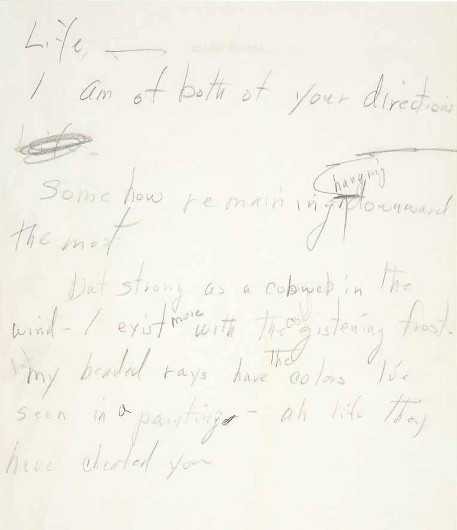 Life, —
I am of both of your directions
Life.
Somehow remaining hanging downward
the most
But strong as a cobweb in the
wind - I exist more with the cold glistening frost.
my beaded rays have the colors I've
seen in a painting - ah life they
have cheated you